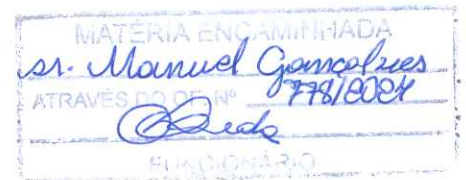 MATÉRIA ENCAMINHADA
Sr. Manuel Gonçalves
ATRAVÉS DO OF. Nº 778/2024
FUNCIONÁRIO